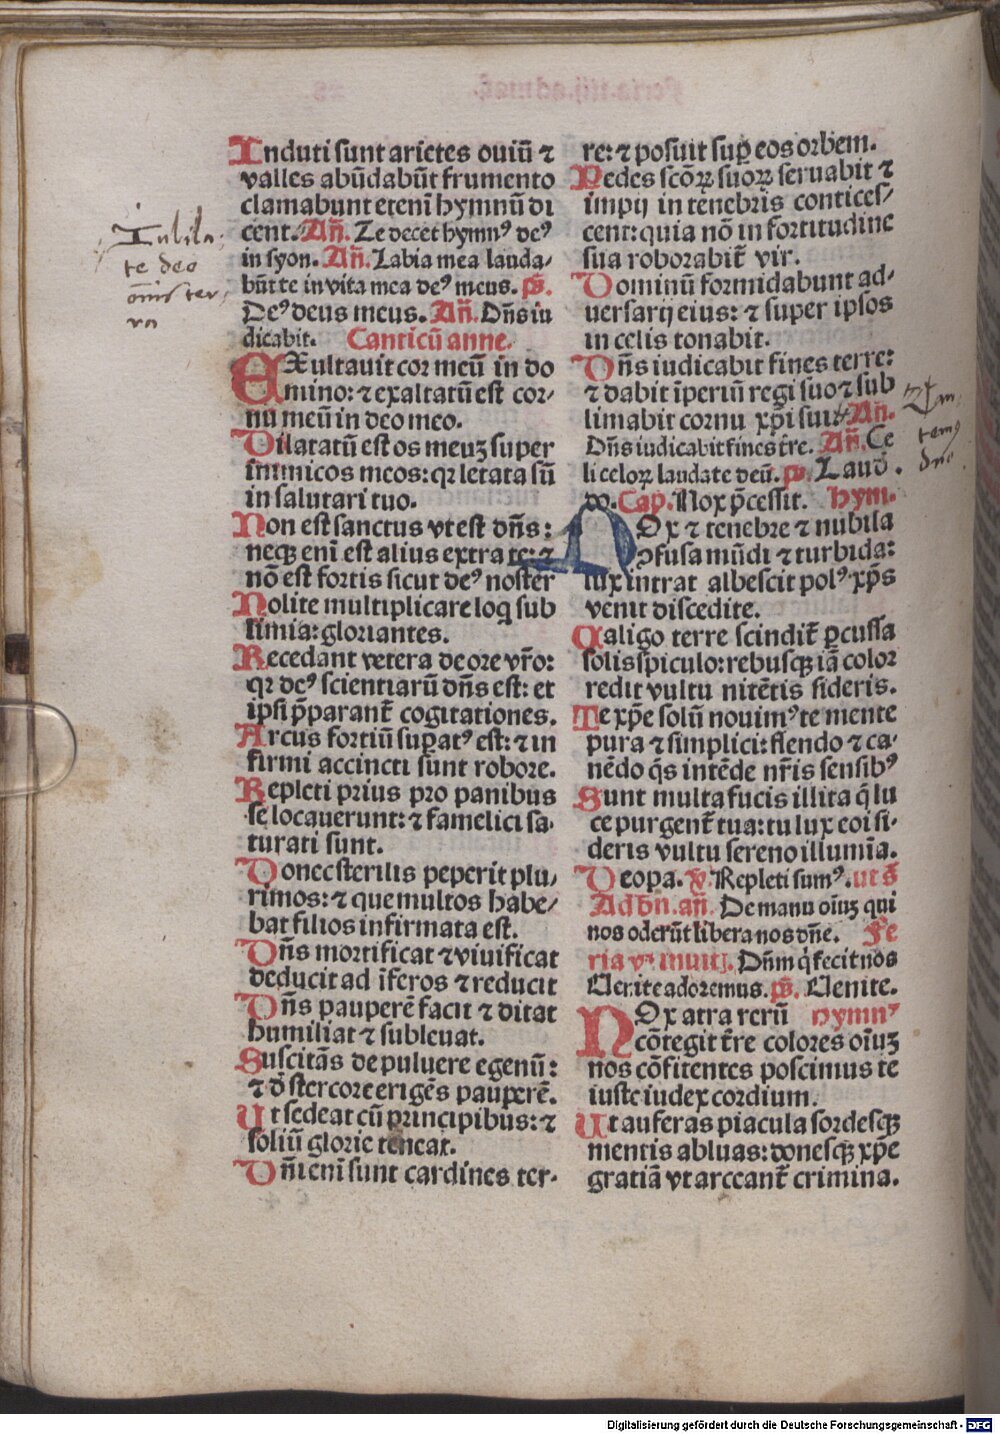 Induti sunt arietes ouiū ⁊
valles abūdabūt frumento
clamabunt etenī hymnū di
cent. Añ. Te decet hymnꝰ deꝰ
in syon. Añ. Labia mea lauda-
būt te in vita mea deꝰ meus. ps̄.
Deꝰ deus meus. Añ. Dñs iu
dicabit. Canticū anne.
EXultauit cor meū in do
mino: ⁊ exaltatū est cor-
nu meū in deo meo.
Dilatatū est os meuꝫ super
inimicos meos: qꝛ letata sū
in salutari tuo.
Non est sanctus vt est dñs:
neqꝫ enī est alius extra te: ⁊
nō est fortis sicut deꝰ noster
Nolite multiplicare loq̄ sub
limia: gloriantes.
Recedant vetera de ore vr̄o:
qꝛ deꝰ scientiarū dñs est: et
ipsi p̄parant᷑ cogitationes.
Arcus fortiū suꝑatꝰ est: ⁊ in
firmi accincti sunt robore.
Repleti prius pro panibus
se locauerunt: ⁊ famelici sa-
turati sunt.
Donec sterilis peperit plu-
rimos: ⁊ que multos habe-
bat filios infirmata est.
Dñs mortificat ⁊ viuificat
deducit ad īferos ⁊ reducit
Dñs pauperē facit ⁊ ditat
humiliat ⁊ subleuat.
Suscitās de puluere egenū:
⁊ d̄ stercore erigēs pauperē.
Ut sedeat cū principibus: ⁊
soliū glorie teneat.
Dñi enī sunt cardines ter-
re: ⁊ posuit suꝑ eos orbem.
Pedes scōꝝ suoꝝ seruabit ⁊
impij in tenebris contices-
cent: quia nō in fortitudine
sua roborabit᷑ vir.
Dominū formidabunt ad-
uersarij eius: ⁊ super ipsos
in celis tonabit.
Dñs iudicabit fines terre:
⁊ dabit īperiū regi suo ⁊ sub
limabit cornu xp̄i sui. Añ.
Dñs iudicabit fines t̄re. Añ. Ce
li celoꝝ laudate deū. ps̄. Laud.
do. Cap̄. Nox p̄cessit. hym.
NOx ⁊ tenebre ⁊ nubila
ꝯfusa mūdi ⁊ turbida:
lux intrat albescit polꝰ xp̄s
venit discedite.
Caligo terre scindit᷑ ꝑcussa
solis spiculo: rebusqꝫ iā color
redit vultu nitētis sideris.
Te xp̄e solū nouimꝰ te mente
pura ⁊ simplici: flendo ⁊ ca-
nēdo q̄s intēde nr̄is sensibꝰ
Sunt multa fucis illita q̄ lu
ce purgent᷑ tua: tu lux eoi si-
deris vultu sereno illumīa.
Deo pa. ℣. Repleti sumꝰ. ut s̄
Ad bñ. añ. De manu oīuꝫ qui
nos oderūt libera nos dñe. Fe
ria vᵃ inuit̄. Dñm q̄ fecit nos
Venite adoremus. ps̄. Venite.
NOx atra rerū hymnꝰ
cōtegit t̄re colores oīuꝫ
nos cōfitentes poscimus te
iuste iudex cordium.
Ut auferas piacula sordesqꝫ
mentis abluas: donesqꝫ xp̄e
gratiā vt arceant᷑ crimina.
Iubila
te deo
om̄is ter
ra
temꝰ
dno
Digitalisierung gefördert durch die Deutsche Forschungsgemeinschaft - DFG